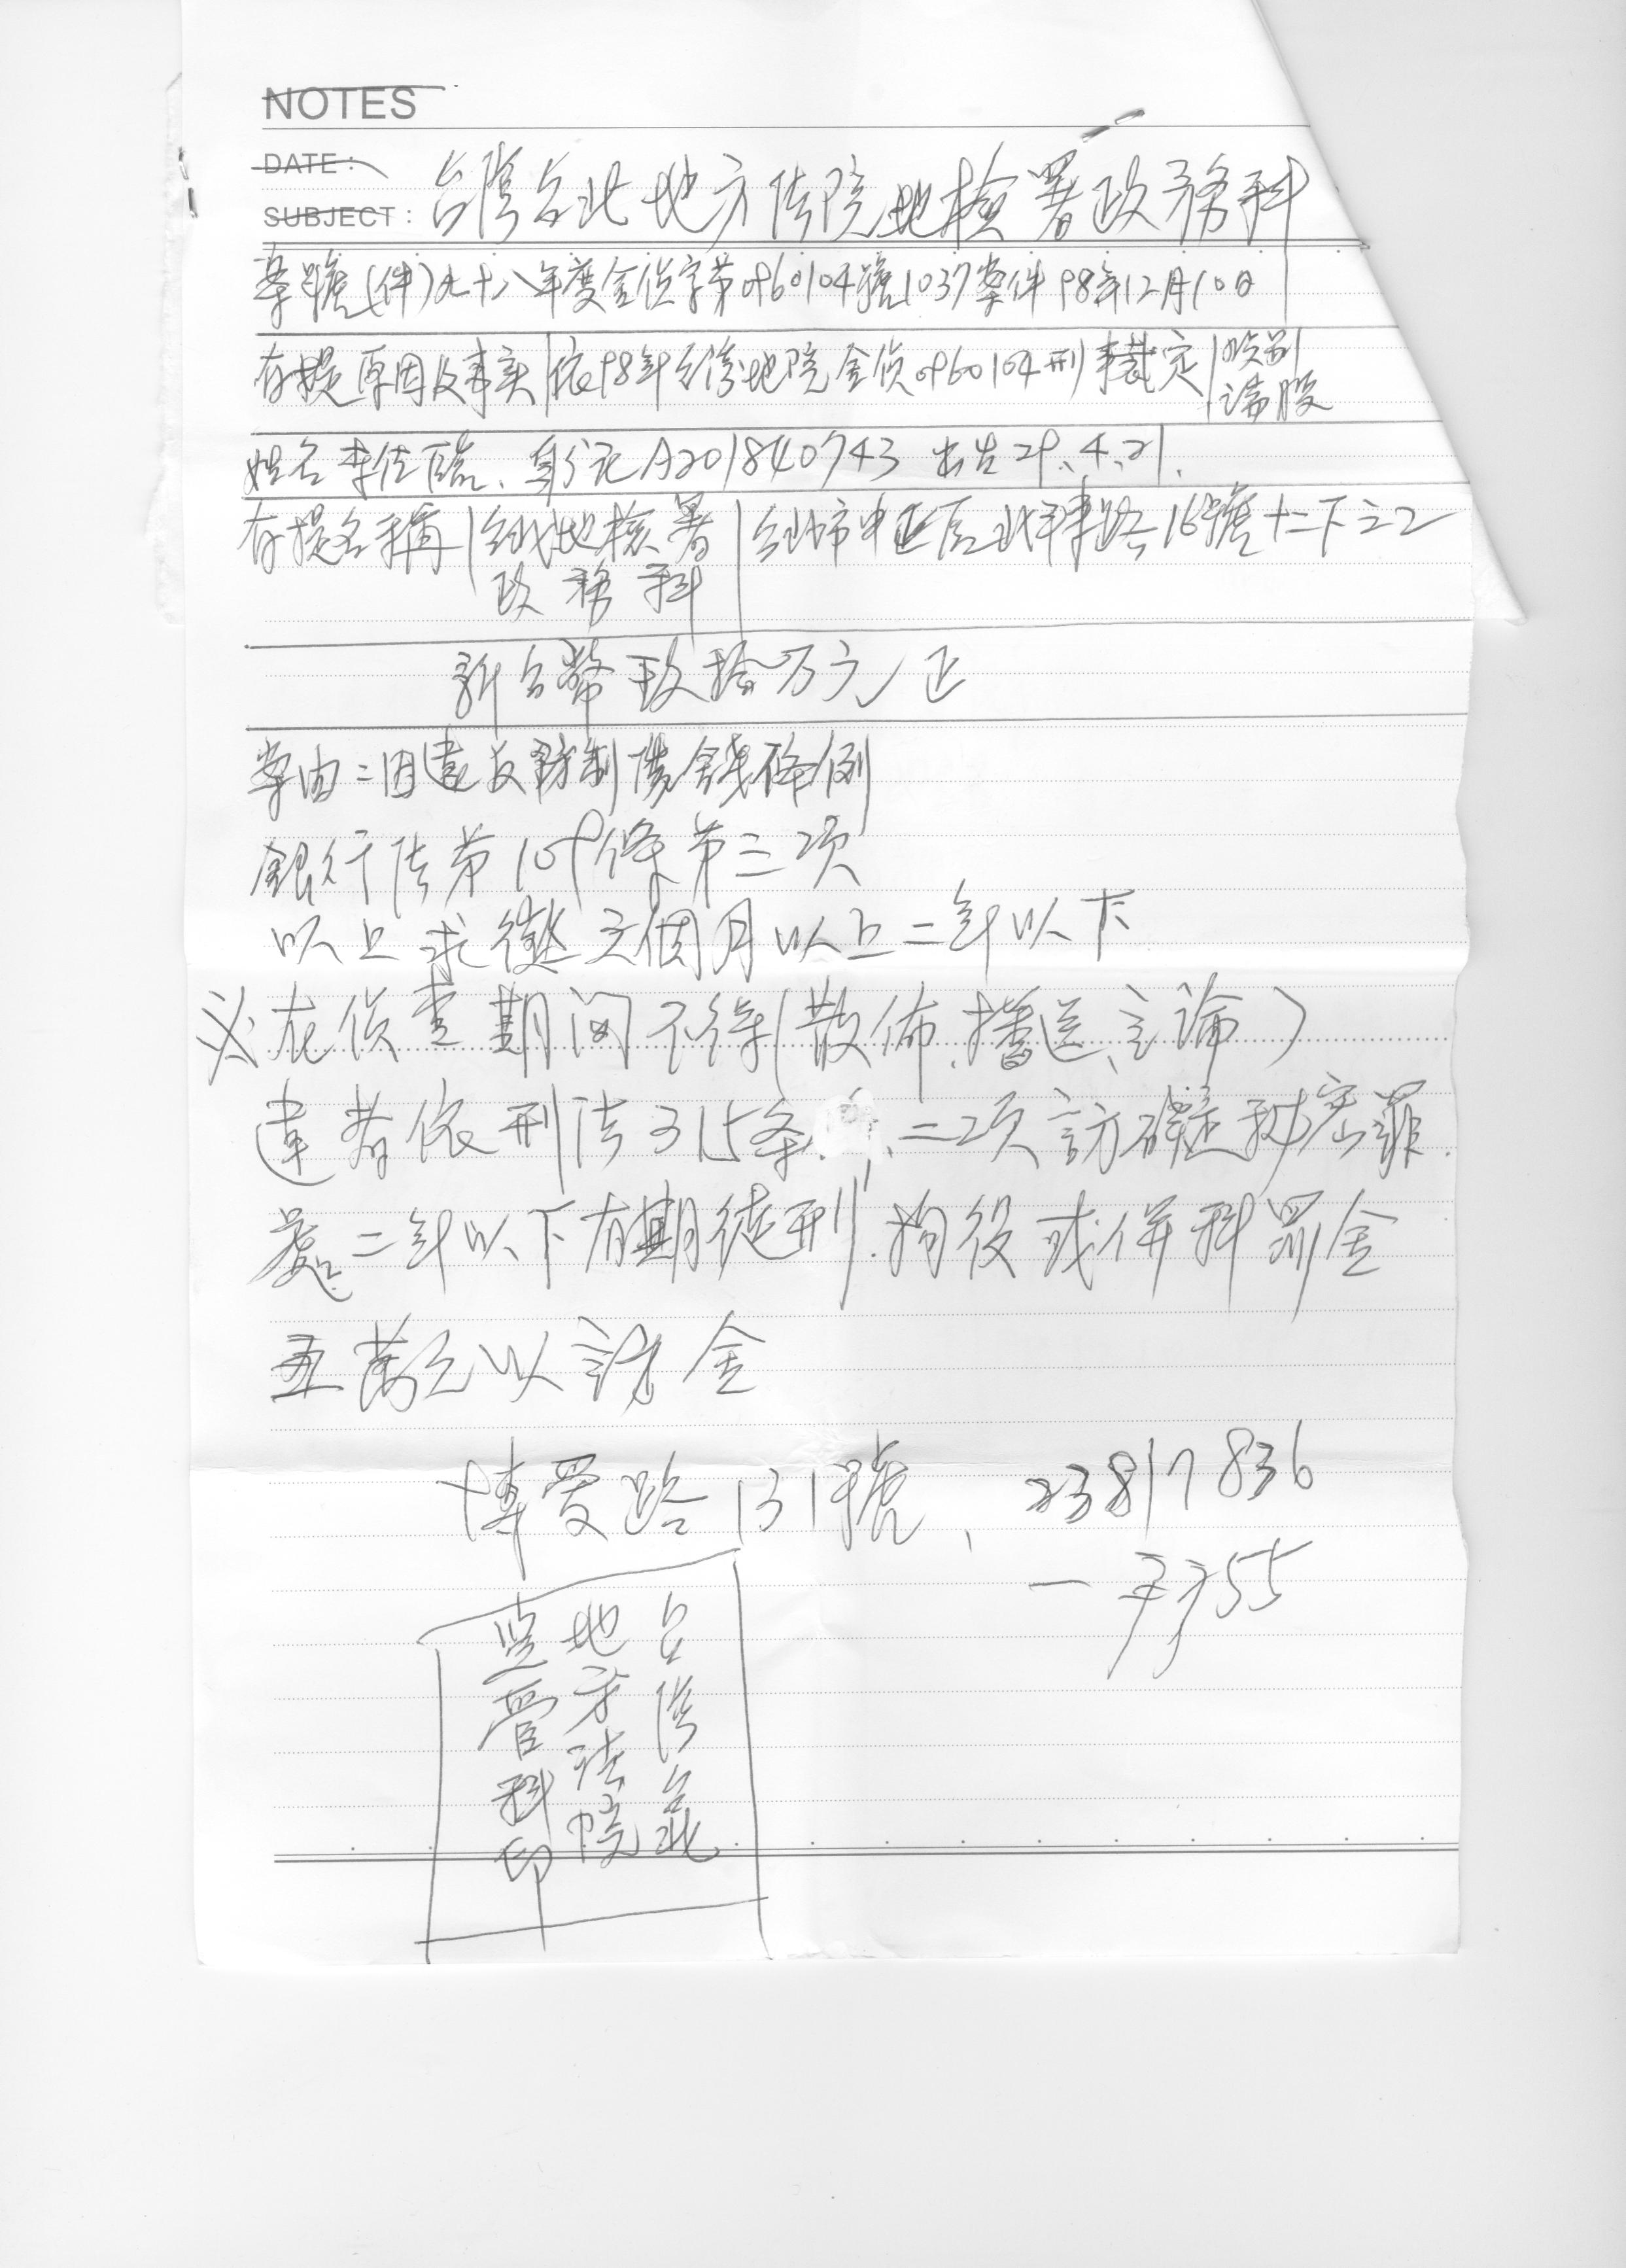 NOTES
DATE:
SUBJECT: 台灣台北地方法院地檢署政務科
案號(件)九十八年度金偵字第0960104號1037案件 98年12月10日
存提原因及事实 依98年台湾地院金偵0960104刑事裁定 股別
股
姓名 李佐臨、身分証A201840743 出生29.4.21.
存提名稱 台北地檢署 台北市中正區北平東路16號十二下之2
政務科
新台幣玖拾万元正
案由:因違反防制洗錢條例
銀行法第109條第三項
以上求徵 個月以上二年以下
在偵查期间不得(散佈、播送、言論)
違者依刑法315条 、二項訪礙秘密罪.
處二年以下有期徒刑.拘役或併科罰金
五萬元以 金
博愛路131號、 23817836
一平方55
台灣台北
地方法院
監管科印